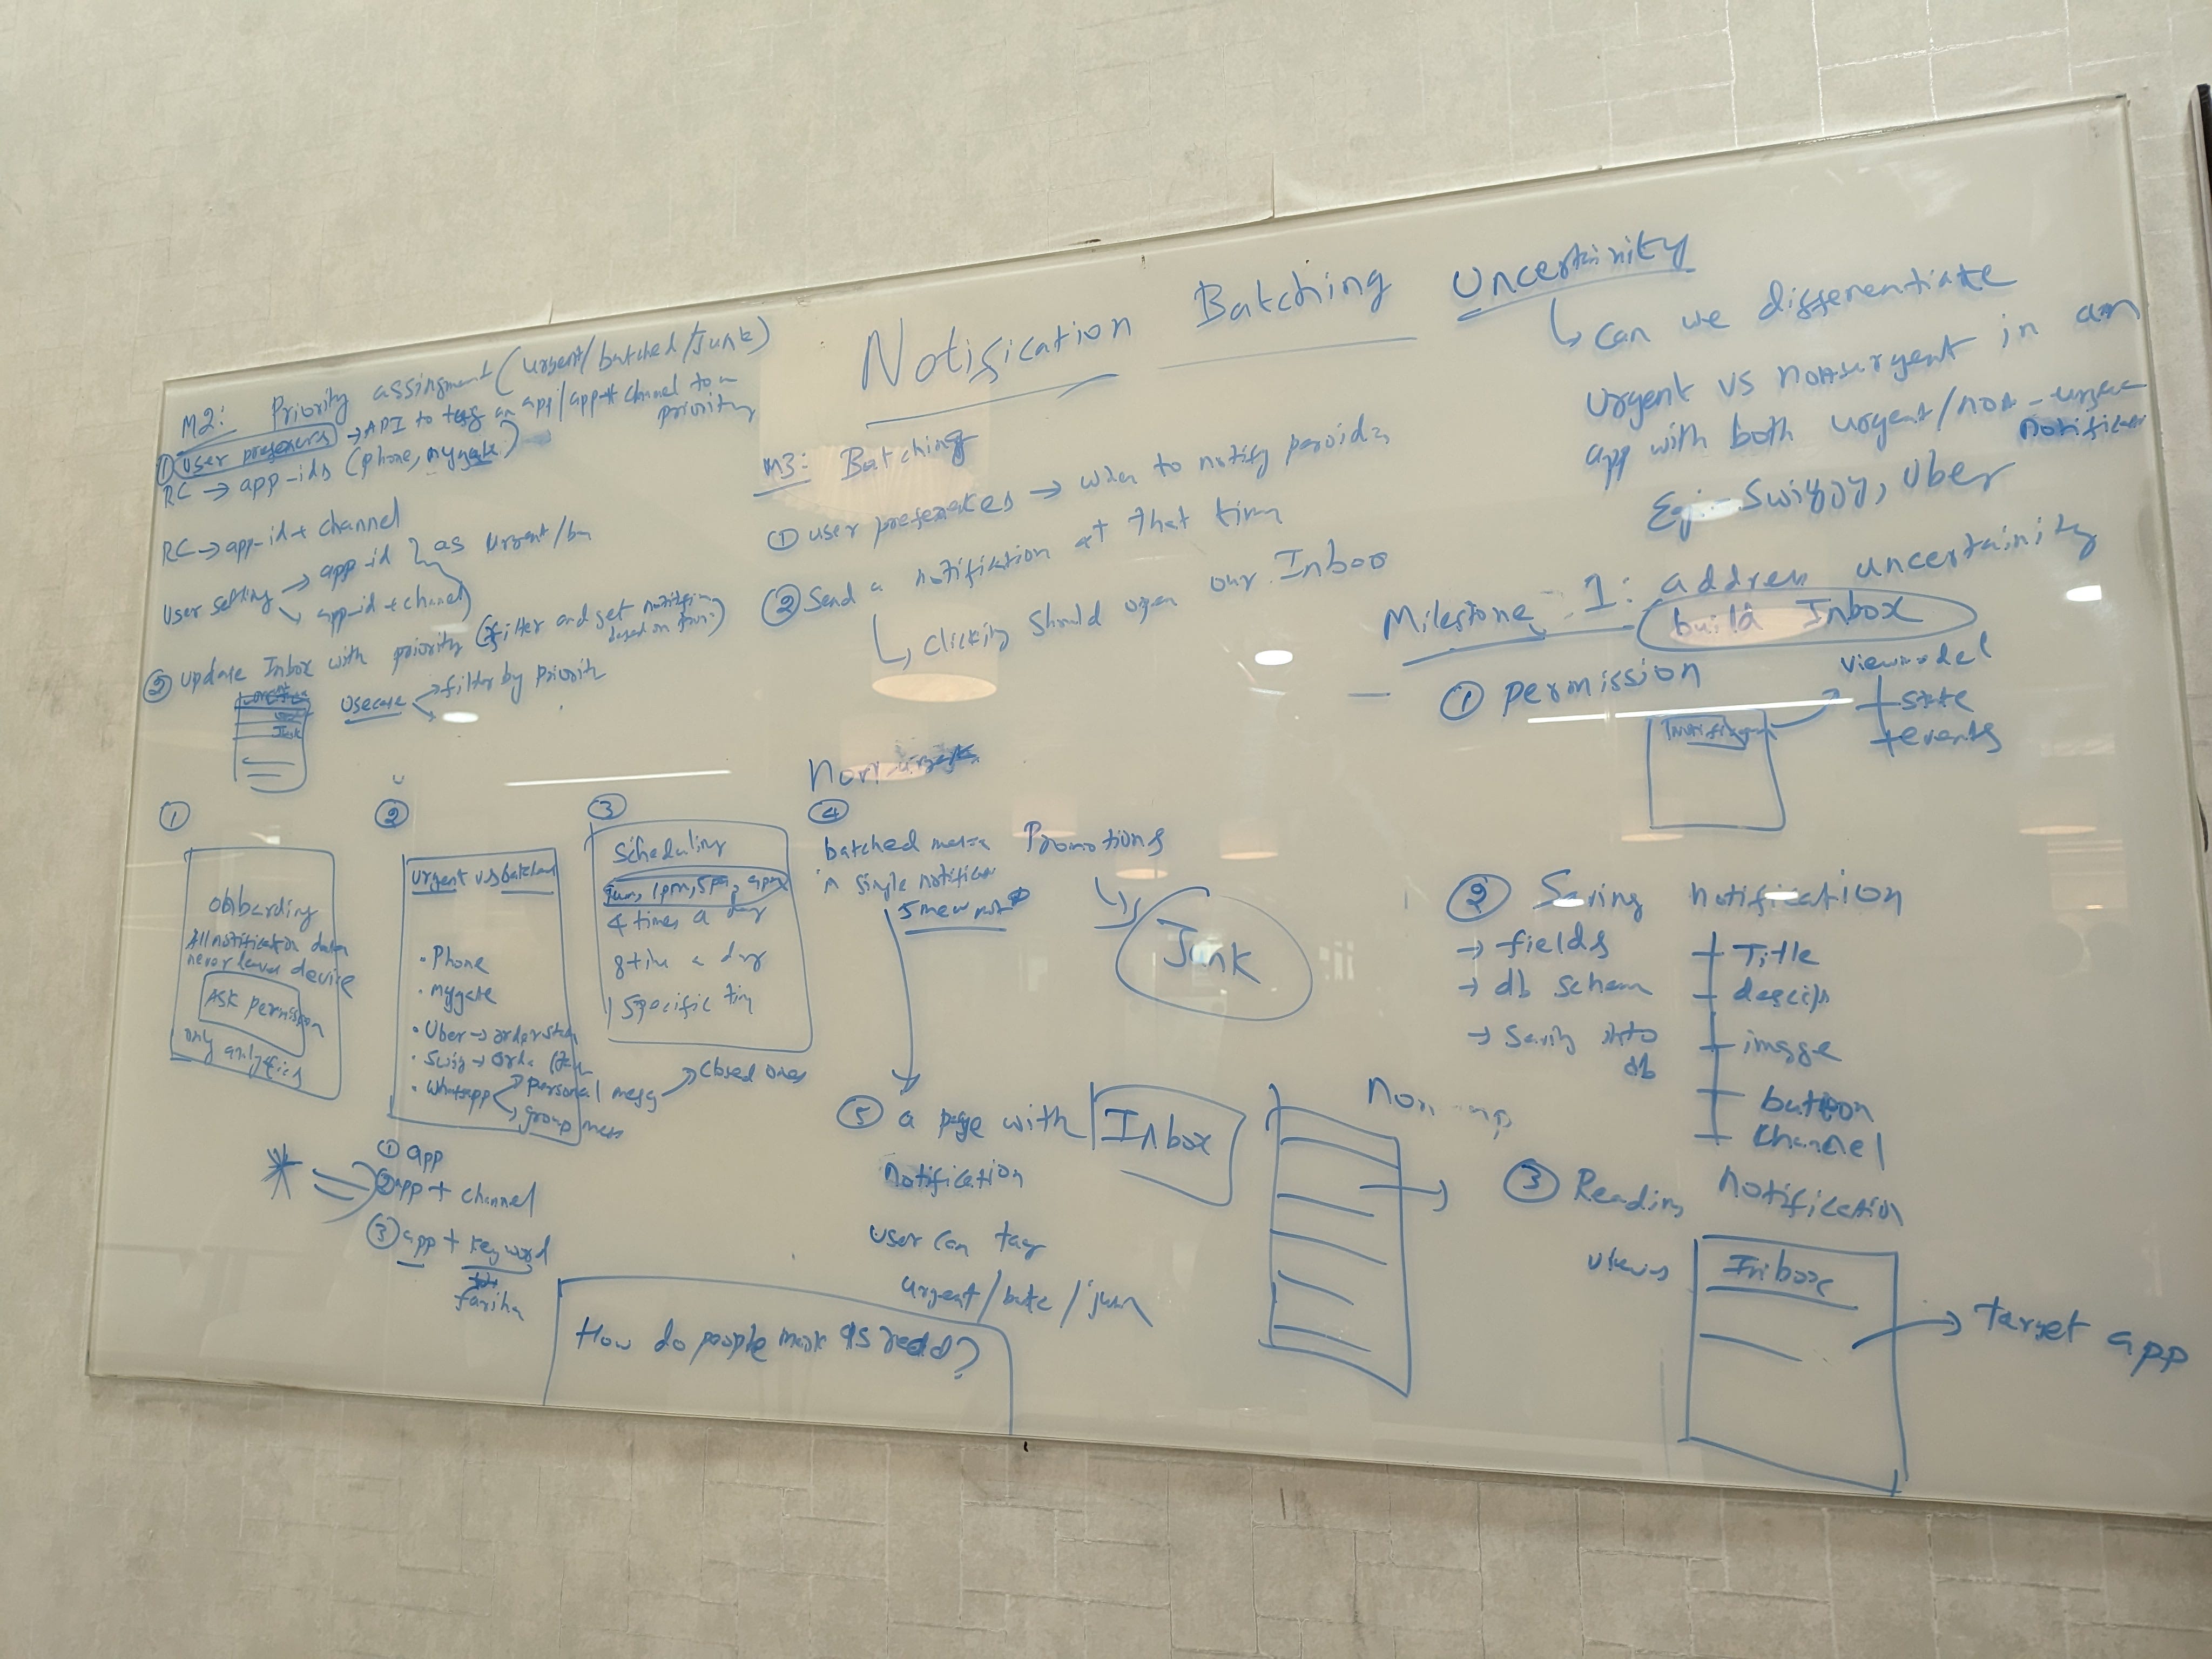 Notification Batching
Uncertinity
↳ can we differentiate
urgent vs non-urgent in an
app with both urgent/non-urgen
Eg:- Swiggy, Uber
M2: Priority assinment (urgent/batched/Junk)
① User → API to tag an app/app+channel to a
priority
RC → app-ids (phone, mygate)
RC → app-id + channel
User setting → app-id } as urgent/
↘ app-id + channel
update Inbox with priority (filter and get
based on
Usecase → filter by priorit
M3: Batching
① user → when to notify
② Send a notification at that tim
↳ Clicking should open our Inbox
Milestone 1: address uncertainity
build Inbox
① permission
viewmodel
+ state
+ events
② Saving notification
→ fields
→ db schem
→ Saving into
db
+ Title
descip
image
button
Channel
③ Reading notification
views
Inbox
→ target app
①
onboarding
All notification data
never leave device
Ask permission
only
②
urgent vs batched
• Phone
• mygate
• Uber →
• Swig →
• Whatsapp → personal mesg → Closed ones
→ group mess
* ① app
② app + channel
③ app + keyword
③
Scheduling
1pm, 5pm,
4 times a day
8 time a day
Specific tim
Non
④
batched
in single notificat
5 new
Promotions
Junk
⑤ a page with
notification
Inbox
user can tag
urgent/batc/jun
Non
How do people mark as read?